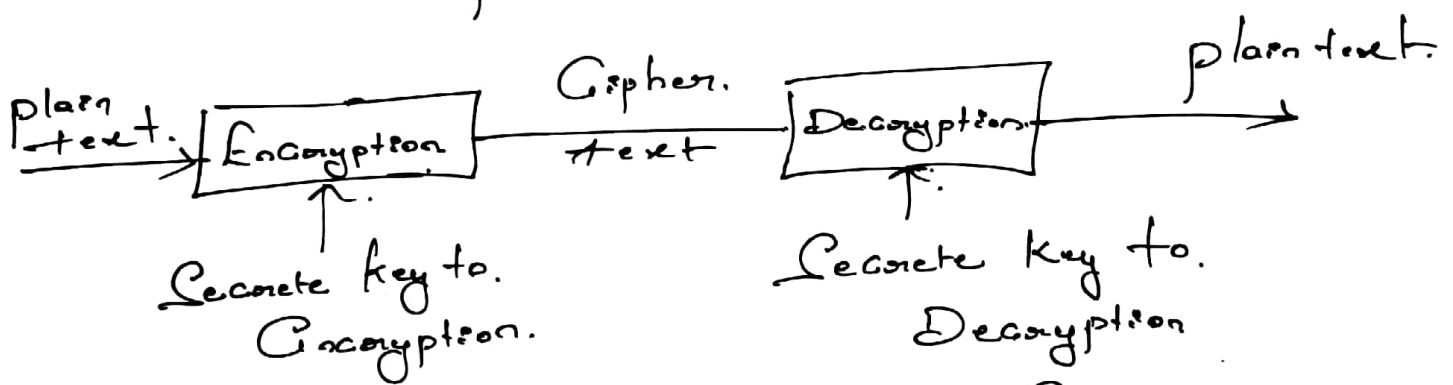 plain
text.
Encryption
Cipher.
text
Decryption
plain text.
Secrete key to.
Encryption.
Secrete Key to.
Decryption